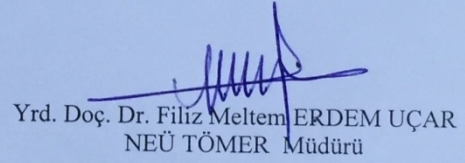 Yrd. Doç. Dr. Filiz Meltem ERDEM UÇAR
NEÜ TÖMER Müdürü